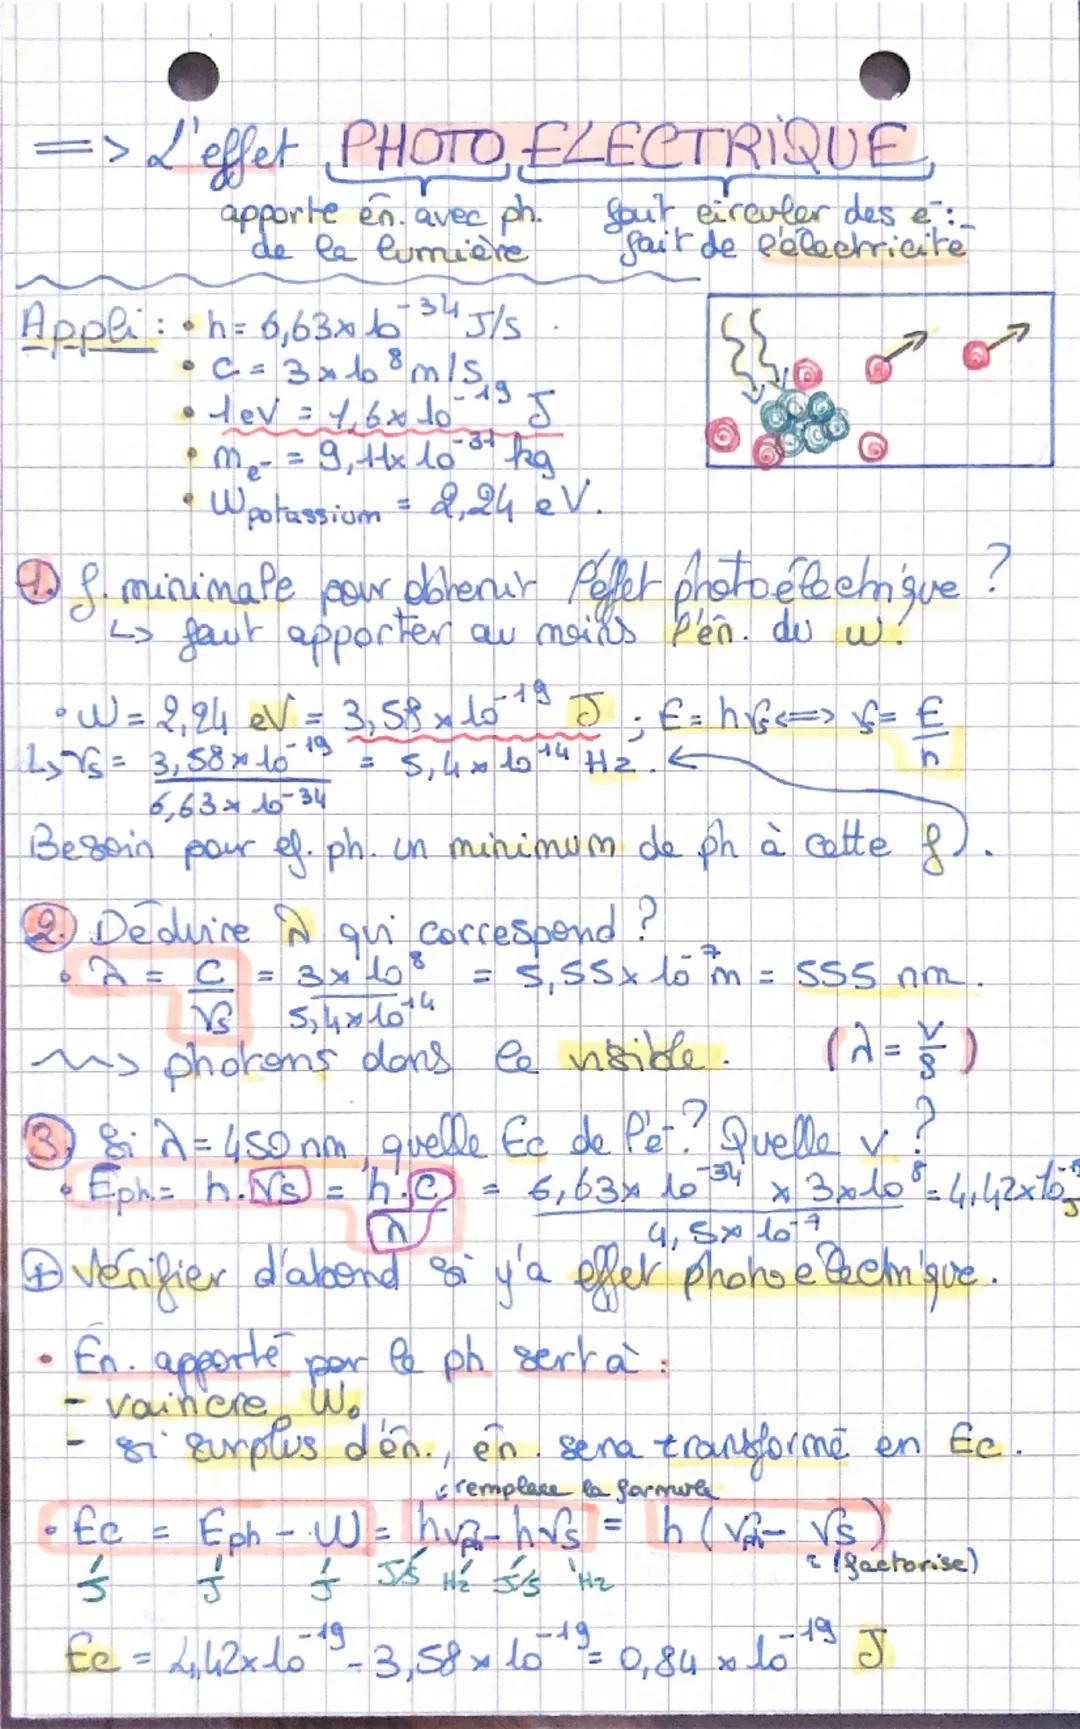 => L'effet PHOTO ELECTRIQUE
apporte én. avec ph. fait circuler des e⁻:
de la lumière fait de l'électricité
Appli : • h = 6,63x10⁻³⁴ J/s
• C = 3x10⁸ m/s
• 1eV = 1,6x10⁻¹⁹ J
• me⁻ = 9,11x10⁻³¹ kg
• Wpotassium = 2,24 eV.
1. f. minimale pour obtenir l'effet photoélectrique ?
↳ faut apporter au moins l'én. du w.
• W = 2,24 eV = 3,58x10⁻¹⁹ J ; E = hνs <=> νs = E/h
↳ νs = 3,58x10⁻¹⁹ / 6,63x10⁻³⁴ = 5,4x10¹⁴ Hz.
Besoin pour ef. ph. un minimum de ph à cette f.
2. Déduire λ qui correspond ?
• λ = C/νs = 3x10⁸ / 5,4x10¹⁴ = 5,55x10⁻⁷ m = 555 nm.
~~> photons dans le visible. (λ = v/f)
3. Si λ = 450 nm, quelle Ec de l'e⁻ ? Quelle v ?
• Eph. = h.νs = h.C/λ = 6,63x10⁻³⁴ x 3x10⁸ / 4,5x10⁻⁷ = 4,42x10⁻¹⁹ J
⊕ Vérifier d'abord si y'a effet photoelectrique.
• En. apporté par le ph sert à :
- vaincre W₀
- si surplus d'én., én. sera transformé en Ec.
remplace la formule
• Ec = Eph - W = hνph - hνs = h(νph - νs)
(factorise)
J J J J/s Hz J/s Hz
Ec = 4,42x10⁻¹⁹ - 3,58x10⁻¹⁹ = 0,84x10⁻¹⁹ J